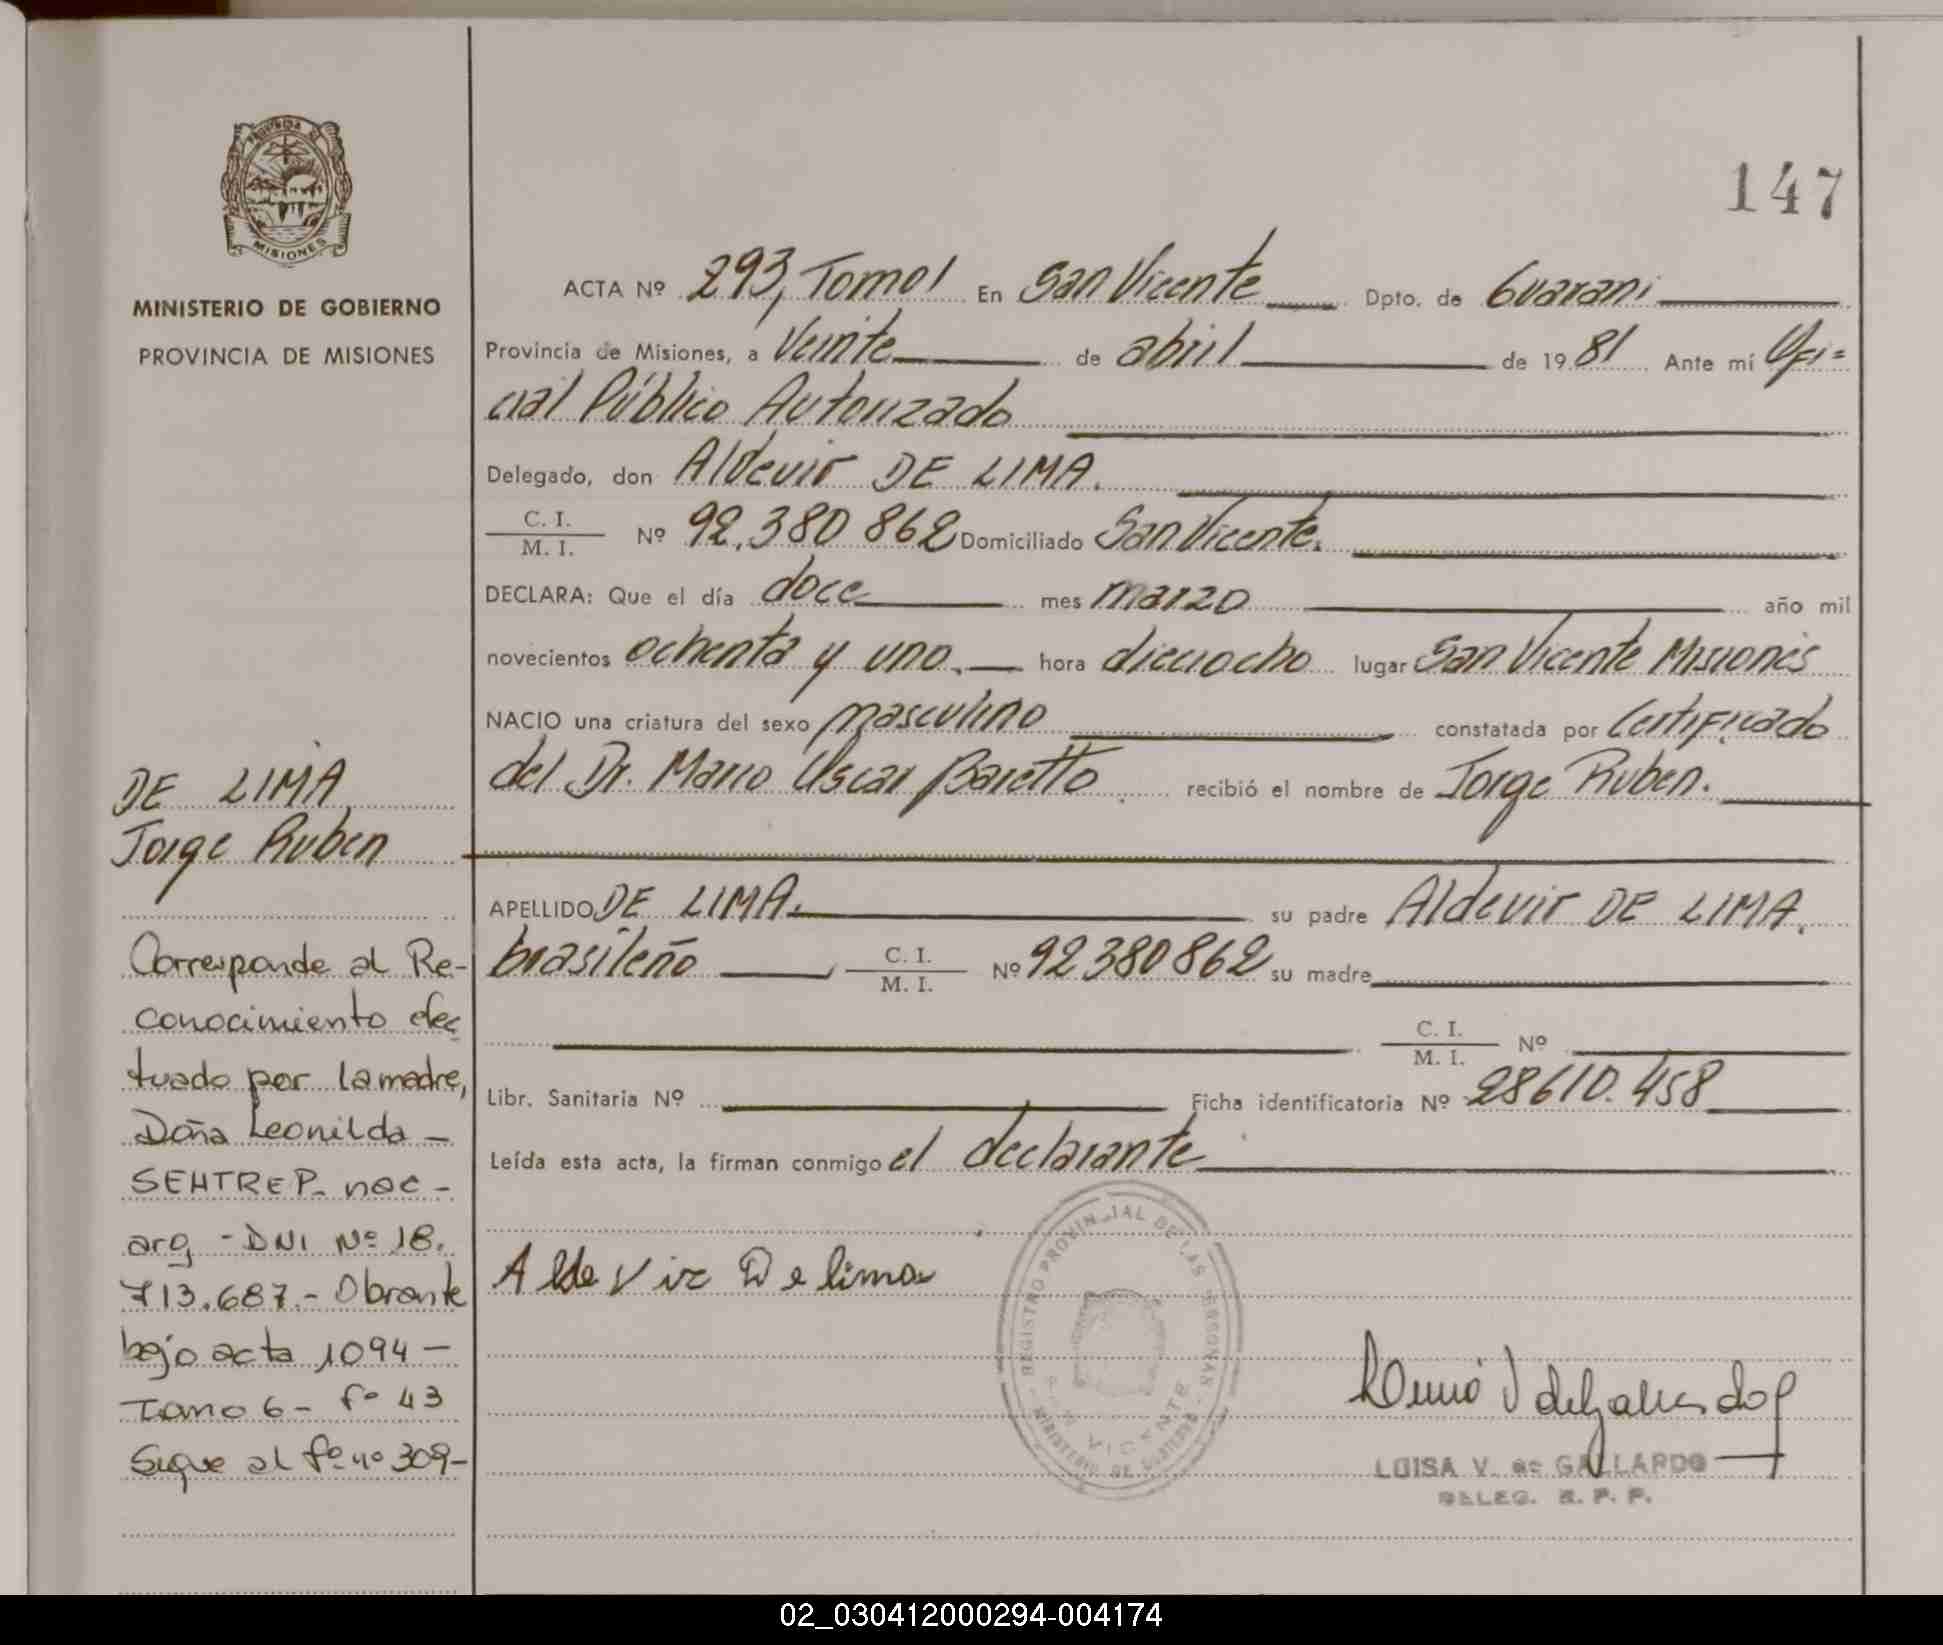 147
PROVINCIA DE
MISIONES
MINISTERIO DE GOBIERNO
PROVINCIA DE MISIONES
ACTA Nº 293, Tomo I En San Vicente Dpto. de Guarani
Provincia de Misiones, a Veinte de abril de 19 81 Ante mí Ofi=
cial Público Autorizado
Delegado, don Aldevir DE LIMA.
C. I.
M. I. Nº 92.380 862 Domiciliado San Vicente.
DECLARA: Que el día doce mes marzo año mil
novecientos ochenta y uno. hora dieciocho lugar San Vicente Misiones
NACIO una criatura del sexo masculino constatada por Certificado
del Dr. Mario Oscar Baretto. recibió el nombre de Jorge Ruben.
APELLIDO DE LIMA. su padre Aldevir DE LIMA.
brasileño C. I.
M. I. Nº 92380862 su madre
C. I.
M. I. Nº
Libr. Sanitaria Nº Ficha identificatoria Nº 28610.458
Leída esta acta, la firman conmigo el declarante
DE LIMA
Jorge Ruben
Corresponde al Re-
conocimiento efec
tuado por la madre,
Doña Leonilda -
SEHTREP. nac -
arg - DNI Nº 18.
713.687.- Obrante
bajo acta 1094 -
Tomo 6 - fº 43
Sigue al fº nº 309-
Aldevir De lima
REGISTRO PROVINCIAL DE LAS PERSONAS
SAN VICENTE
MINISTERIO DE GOBIERNO
LUISA V. de GALLARDO
DELEG. R. P. P.
02_030412000294-004174